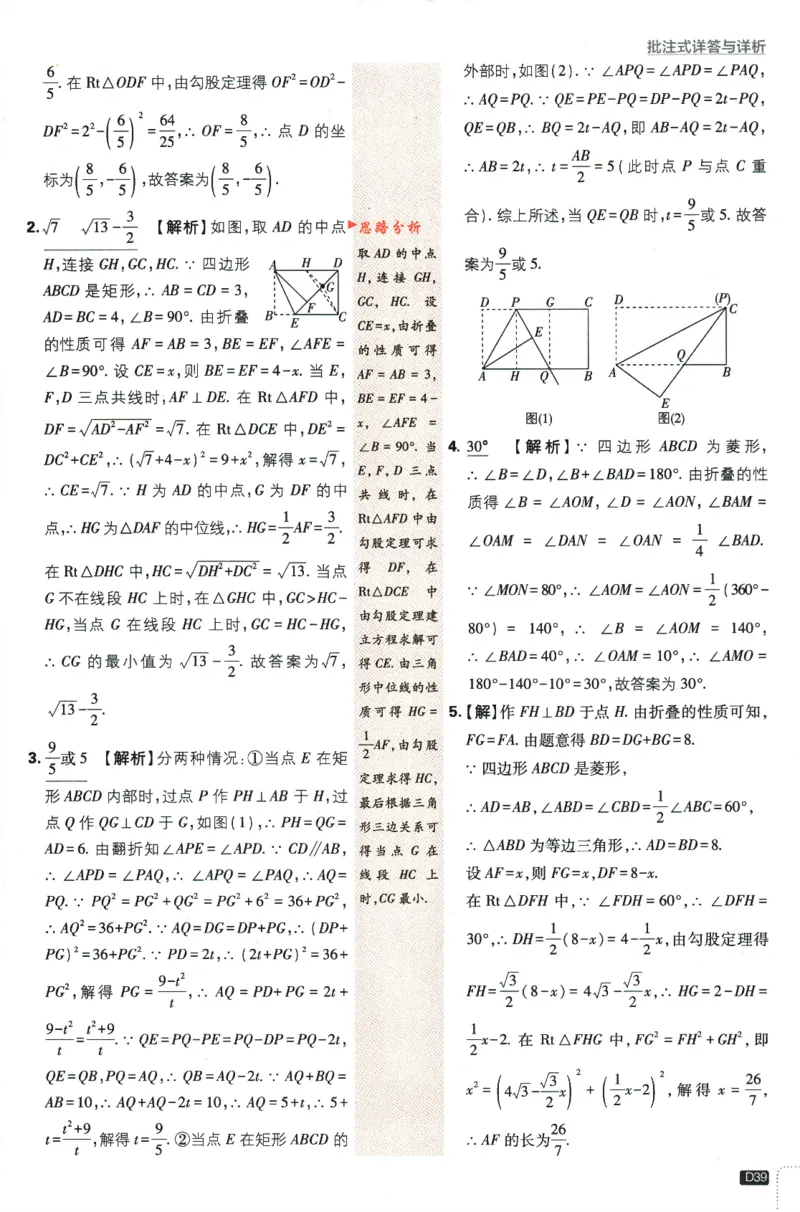 批注式详答与详析
6/5.在 Rt△ODF 中,由勾股定理得 OF²=OD²-
DF²=2²-(6/5)²=64/25,∴ OF=8/5,∴ 点 D 的坐
标为(8/5,-6/5),故答案为(8/5,-6/5).
2.√7 √13-3/2 【解析】如图,取 AD 的中点
H,连接 GH,GC,HC.∵ 四边形
ABCD 是矩形,∴ AB=CD=3,
AD=BC=4,∠B=90°. 由折叠
A H D
G
F
B E C
的性质可得 AF=AB=3,BE=EF,∠AFE=
∠B=90°. 设 CE=x,则 BE=EF=4-x. 当 E,
F,D 三点共线时,AF⊥DE. 在 Rt△AFD 中,
DF=√(AD²-AF²)=√7. 在 Rt△DCE 中,DE²=
DC²+CE²,∴(√7+4-x)²=9+x²,解得 x=√7,
∴ CE=√7.∵ H 为 AD 的中点,G 为 DF 的中
点,∴ HG为△DAF的中位线,∴ HG=1/2AF=3/2.
在 Rt△DHC 中,HC=√(DH²+DC²)=√13. 当点
G 不在线段 HC 上时,在△GHC 中,GC>HC-
HG,当点 G 在线段 HC 上时,GC=HC-HG,
∴ CG 的最小值为 √13-3/2. 故答案为√7,
√13-3/2.
3. 9/5或5 【解析】分两种情况:①当点 E 在矩
形 ABCD 内部时,过点 P 作 PH⊥AB 于 H,过
点 Q 作 QG⊥CD 于 G,如图(1),∴ PH=QG=
AD=6. 由翻折知∠APE=∠APD.∵ CD∥AB,
∴ ∠APD=∠PAQ,∴ ∠APQ=∠PAQ,∴ AQ=
PQ.∵ PQ²=PG²+QG²=PG²+6²=36+PG²,
∴ AQ²=36+PG².∵ AQ=DG=DP+PG,∴(DP+
PG)²=36+PG².∵ PD=2t,∴(2t+PG)²=36+
PG²,解得 PG=(9-t²)/t,∴ AQ=PD+PG=2t+
(9-t²)/t=(t²+9)/t.∵ QE=PQ-PE=PQ-DP=PQ-2t,
QE=QB,PQ=AQ,∴ QB=AQ-2t.∵ AQ+BQ=
AB=10,∴ AQ+AQ-2t=10,∴ AQ=5+t,∴ 5+
t=(t²+9)/t,解得 t=9/5.②当点 E 在矩形 ABCD 的
思路分析
取 AD 的中点
H,连接 GH,
GC,HC. 设
CE=x,由折叠
的性质可得
AF=AB=3,
BE=EF=4-
x,∠AFE=
∠B=90°. 当
E,F,D 三点
共线时,在
Rt△AFD 中由
勾股定理可求
得 DF,在
Rt△DCE 中
由勾股定理建
立方程求解可
得 CE. 由三角
形中位线的性
质可得 HG=
1/2AF,由勾股
定理求得 HC,
最后根据三角
形三边关系可
得当点 G 在
线段 HC 上
时,CG 最小.
外部时,如图(2).∵ ∠APQ=∠APD=∠PAQ,
∴ AQ=PQ.∵ QE=PE-PQ=DP-PQ=2t-PQ,
QE=QB,∴ BQ=2t-AQ,即 AB-AQ=2t-AQ,
∴ AB=2t,∴ t=AB/2=5(此时点 P 与点 C 重
合). 综上所述,当 QE=QB 时,t=9/5或 5. 故答
案为9/5或5.
D P G C D (P) C
E
Q
A H Q B A B
E
图(1) 图(2)
4. 30° 【解析】∵ 四边形 ABCD 为菱形,
∴ ∠B=∠D,∠B+∠BAD=180°. 由折叠的性
质得 ∠B=∠AOM,∠D=∠AON,∠BAM=
∠OAM=∠DAN=∠OAN=1/4∠BAD.
∵ ∠MON=80°,∴ ∠AOM=∠AON=1/2(360°-
80°)=140°,∴ ∠B=∠AOM=140°,
∴ ∠BAD=40°,∴ ∠OAM=10°,∴ ∠AMO=
180°-140°-10°=30°,故答案为 30°.
5.【解】作 FH⊥BD 于点 H. 由折叠的性质可知,
FG=FA. 由题意得 BD=DG+BG=8.
∵ 四边形 ABCD 是菱形,
∴ AD=AB,∠ABD=∠CBD=1/2∠ABC=60°,
∴ △ABD 为等边三角形,∴ AD=BD=8.
设 AF=x,则 FG=x,DF=8-x.
在 Rt△DFH 中,∵ ∠FDH=60°,∴ ∠DFH=
30°,∴ DH=1/2(8-x)=4-1/2x,由勾股定理得
FH=√3/2(8-x)=4√3-√3/2x,∴ HG=2-DH=
1/2x-2. 在 Rt△FHG 中,FG²=FH²+GH²,即
x²=(4√3-√3/2x)²+(1/2x-2)²,解得 x=26/7,
∴ AF 的长为26/7.
D39